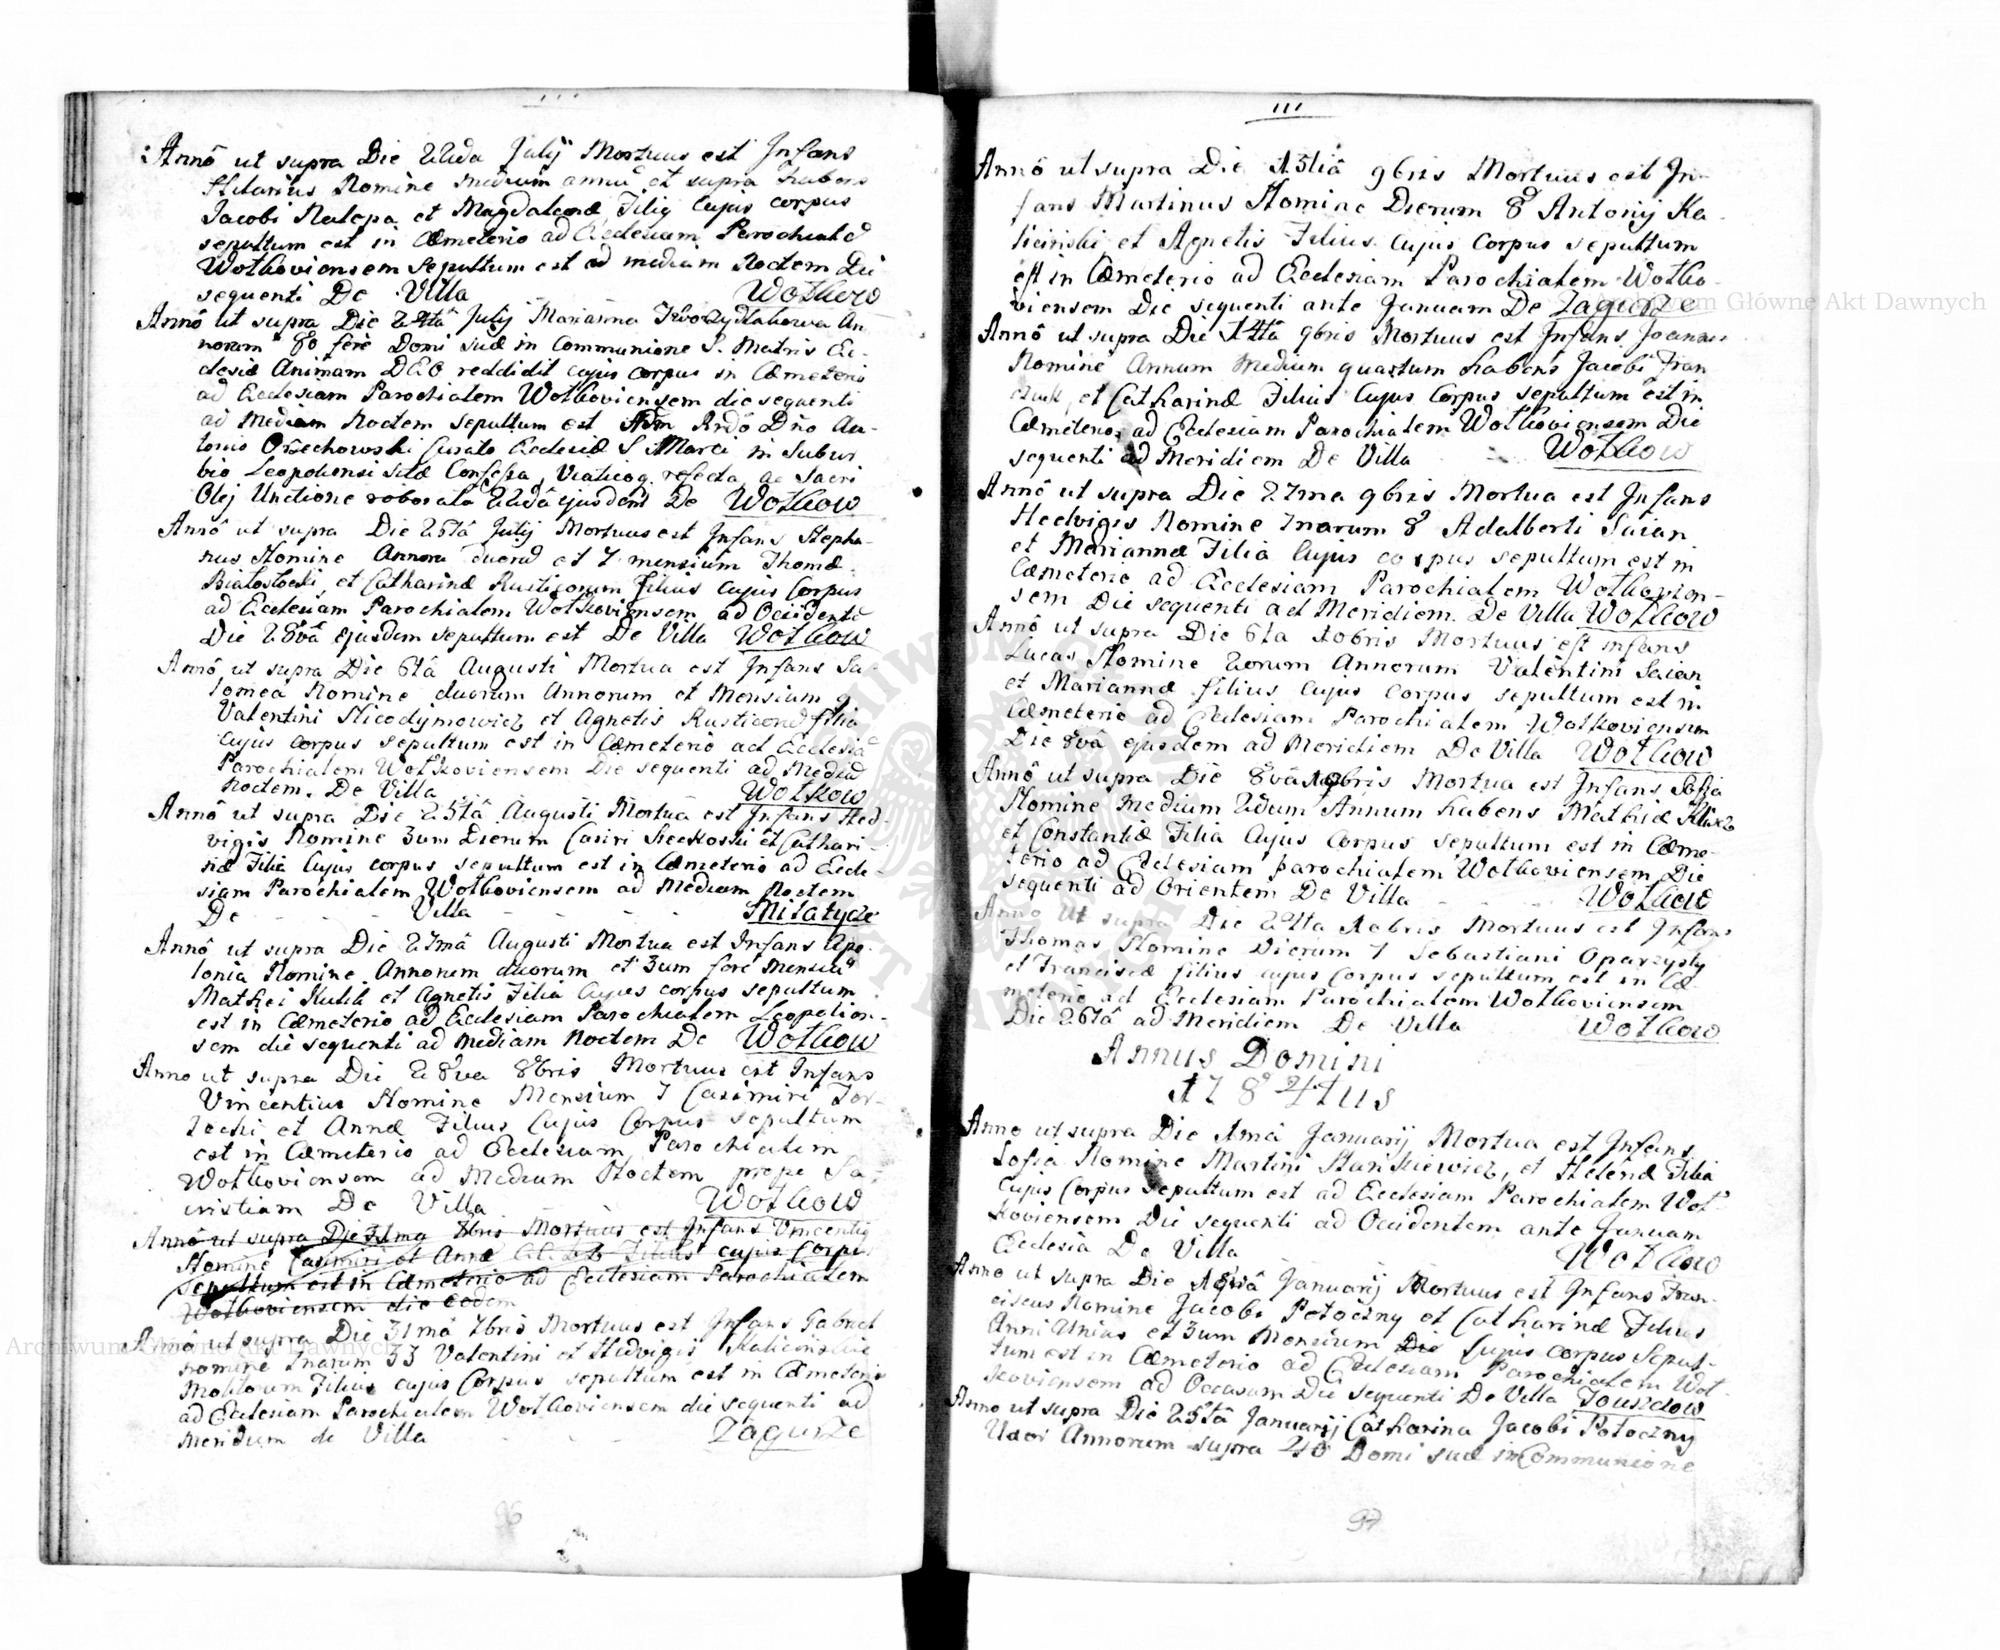 Annô ut supra Die 22da Julij Mortuus est Infans
Hilarius Nomine medium annũ et supra habens
Jacobi Nalepa et Magdalenæ Filiq Cujus corpus
sepultum est in Cœmeterio ad Ecclesiam Parochialẽ
Wołkoviensem Sepultum est ad mediam Noctem Die
sequenti De Villa Wołkow
Annô ut supra Die 24tâ Julij Marianna An
norum 80 fere Domi suæ in Communione S. Matris Ec-
clesiæ Animam DEO reddidit cujus corpus in Cœmeterio
ad Ecclesiam Parochialem Wołkoviensem die sequenti
ad Mediam Noctem sepultum est Rndô Dño An-
tonio Orzechowski Curato Ecclesiæ S Marci in Subur
bio Leopoliensi sitæ Confessa, Viaticoq. refecta ac Sacri
Olej Unctione roborata 22dâ ejusdem De Wołkow
Annô ut supra Die 26tâ Julij Mortuus est Infans Stepha-
nus Nomine Annorũ duorũ et 7 mensium Thomæ
Białostocki, et Catharinæ Rusticorum Filius Cujus Corpus
ad Ecclesiam Parochialem Wołkoviensem ad Occidentẽ
Die 28vâ Ejusdem sepultum est De Villa Wołkow
Annô ut supra Die 6tâ Augusti Mortua est Infans Sa-
lomea Nomine duorum Annorum et Mensium 9
Valentini Nicodymowicz et Agnetis Rusticorũ filia
Cujus corpus sepultum est in Cœmeterio ad Ecclesiã
Parochialem Wołkoviensem Die sequenti ad Mediã
Noctem. De Villa Wołkow
Annô ut supra Die 25tâ Augusti Mortua est Infans Hed-
vigis Nomine 3um Dierum Casiri et Cathari-
næ Filia Cujus corpus sepultum est in Cœmeterio ad Eccle-
siam Parochialem Wołkoviensem ad Mediam Noctem
De - - - Villa - - - Miłatycze
Annô ut supra Die 27mâ Augusti Mortua est Infans Apo-
lonia Nomine Annorum duorum et 3um fere Mensiũ
Mathei Kulik et Agnetis Filia Cujus corpus sepultum
est in Cœmeterio ad Ecclesiam Parochialem Leopolien-
sem die sequenti ad mediam Noctem De Wołkow
Anno ut supra Die 28va 8bris Mortuus est Infans
Vincentius Nomine Mensium 7 Casimiri
et Annæ Filius Cujus Corpus sepultum
est in Cœmeterio ad Ecclesiam Parochialem
Wołkoviensem ad Mediam Noctem prope Sa-
cristiam De Villa Wołkow
Annô ut supra Die 31ma Mortuus est Infans Vincentiq
Nomine Casimiri et Annæ Filius cujus Corpus
sepultum est in Cœmeterio ad Ecclesiam Parochialem
Wołkoviensem die eodem
Annô ut supra Die 31mâ Mortuus est Infans Gabriel
nomine 33 Valentini et Hedvigis
Molitorum Filius cujus Corpus sepultum est in Cœmeterio
ad Ecclesiam Parochialem Wołkoviensem die sequenti ad
Meridiem de Villa - - - Zagurze
96
111
Annô ut supra Die 13tiâ 9bris Mortuus est In-
fans Martinus Nomine Dierum 8 Antonij Ka-
liciński et Agnetis Filius Cujus Corpus sepultum
est in Cœmeterio ad Ecclesiam Parochialem Wołko-
viensem Die sequenti ante Januam De Zagurze
Annô ut supra Die 14tâ 9bris Mortuus est Infans Joannes
Nomine Annum Medium quartum habens Jacobi Fran
czuk, et Catharinæ Filius Cujus Corpus sepultum est in
Cœmeterio, ad Ecclesiam Parochialem Wołkoviensem Die
sequenti ad Meridiem De Villa Wołkow
Annô ut supra Die 27ma 9bris Mortua est Infans
Hedvigis Nomine 8 Adalberti Saian
et Mariannæ Filia Cujus corpus sepultum est in
Cœmeterio ad Ecclesiam Parochialem Wołkovien-
sem Die sequenti ad Meridiem. De Villa Wołkow
Annô ut supra Die 6ta Xobris Mortuus est infans
Lucas Nomine 2orum Annorum Valentini Saian
et Mariannæ filius Cujus corpus sepultum est in
Cœmeterio ad Ecclesiam Parochialem Wołkoviensem
Die 8vâ ejusdem ad Meridiem De Villa Wołkow
Annô ut supra Die 8vâ Mortua est Infans Sofia
Nomine Medium 2dum Annum habens Mathiæ
et Constantiæ Filia Cujus Corpus sepultum est in Cœme-
terio ad Ecclesiam parochialem Wołkoviensem Die
sequenti ad Orientem De Villa - - Wołkow
Anno Ut supra Die 24ta Xobris Mortuus est Infans
Thomas Nomine Dierum 7 Sebastiani Oparzysty
et Franciscæ filius cujus Corpus sepultum est in Cœ-
meterio ad Ecclesiam Parochialem Wołkoviensem
Die 26tâ ad Meridiem De Villa Wołkow
Annus Domini
1784tus
Anno ut supra Die 1mâ Januarij Mortua est Infans
Sofia Nomine Martini Stankiewicz, et Helenæ Filia
Cujus Corpus sepultum est ad Ecclesiam Parochialem Woł-
koviensem Die sequenti ad Occidentem ante Januam
Ecclesiæ De Villa Wołkow
Anno ut supra Die 18vâ Januarij Mortuus est Infans Fran-
ciscus Nomine Jacobi Potoczny et Catharinæ Filius
Anni Unius et 3um Mensium Die Cujus corpus Sepul-
tum est in Cœmeterio ad Ecclesiam Parochialem Woł-
koviensem ad Occasum Die sequenti De Villa Touszczow
Anno ut supra Die 25tâ Januarij Catharina Jacobi Potoczny
Uxor Annorum supra 40 Domi suæ in Communione
97
Archiwum Główne Akt Dawnych
Archiwum Główne Akt Dawnych